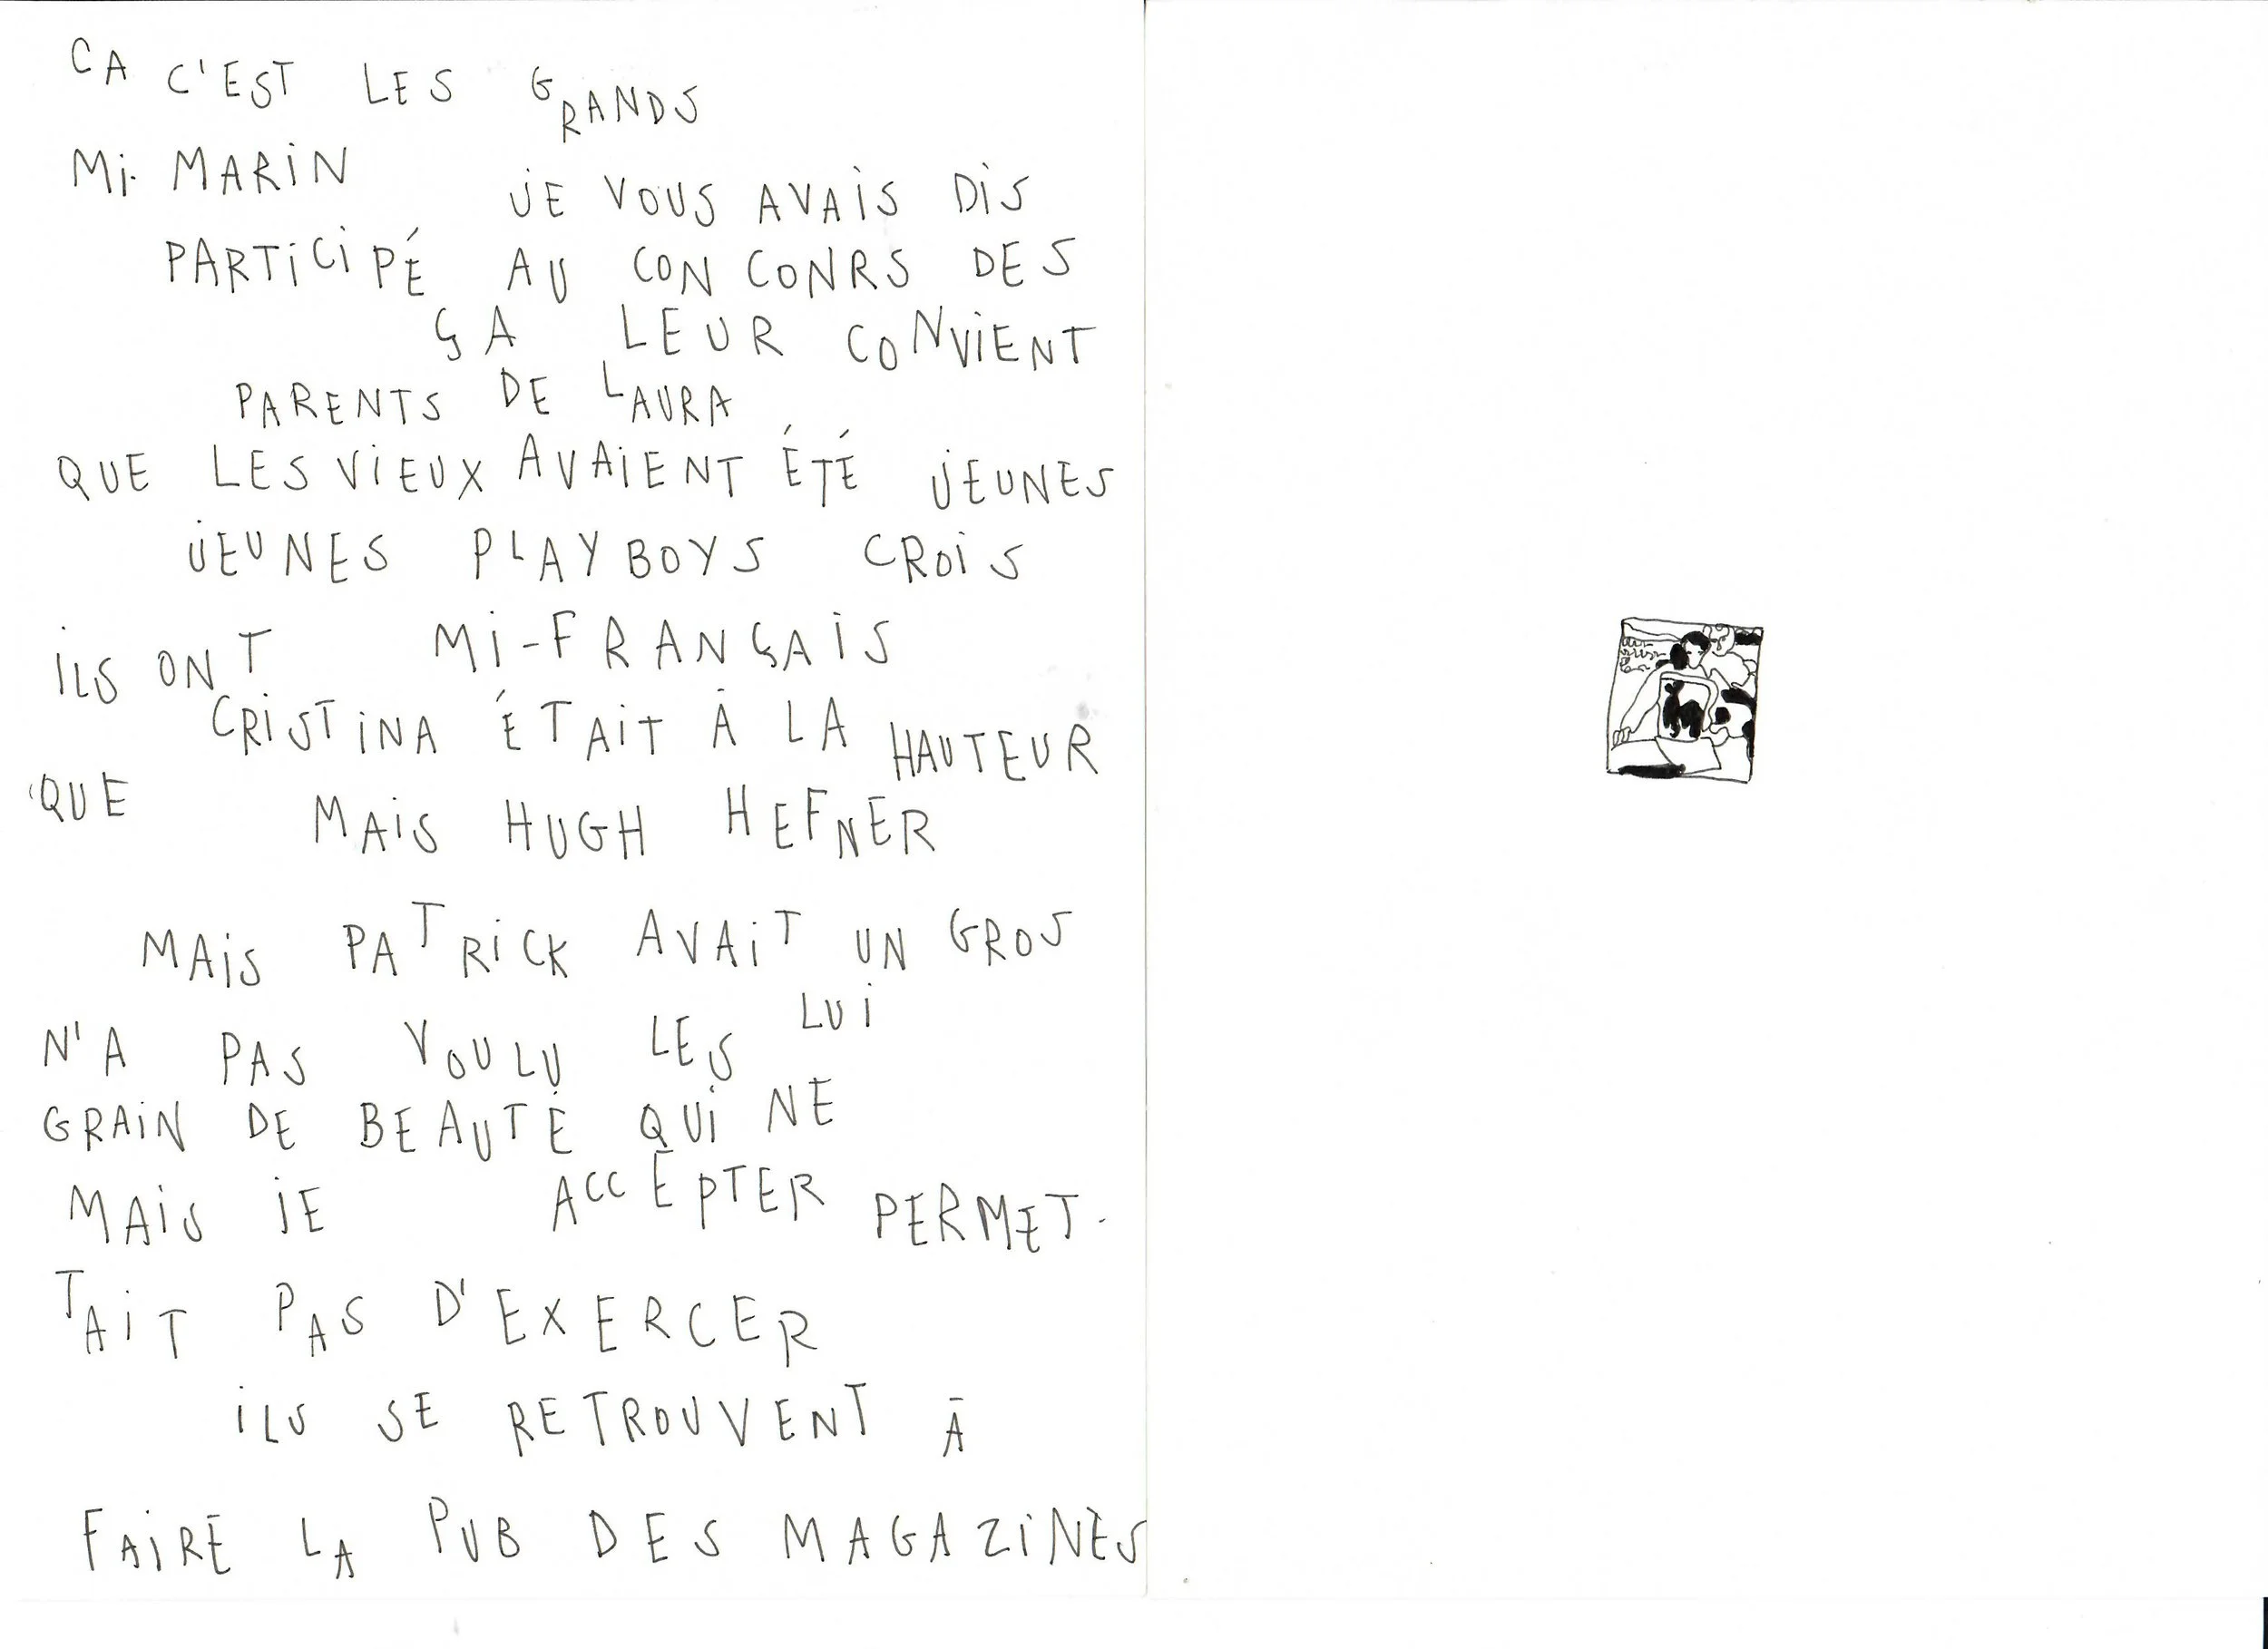 CA C'EST LES GRANDS
Mi-MARiN JE VOUS AVAiS DiS
PARTiCiPÉ AU CON CONRS DES
ÇA LEUR CONViENT
PARENTS DE LAURA
QUE LES ViEUX AVAiENT ÉTÉ JEUNES
JEUNES PLAYBOYS CROiS
iLS ONT Mi-FRANÇAiS
CRiSTiNA ÉTAiT À LA HAUTEUR
QUE MAiS HUGH HEFNER
MAiS PATRiCK AVAiT UN GROS
N'A PAS VOULU LES LUi
GRAiN DE BEAUTÉ QUi NE
MAiS JE ACCEPTER PERMET-
TAiT PAS D'EXERCER
iLS SE RETROUVENT À
FAiRE LA PUB DES MAGAZiNES